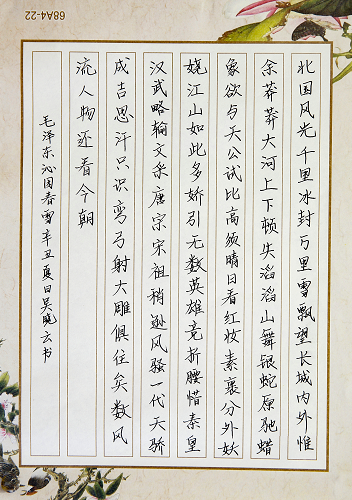 68A4-22
北国风光千里冰封万里雪飘望长城内外惟
余莽莽大河上下顿失滔滔山舞银蛇原驰蜡
象欲与天公试比高须晴日看红妆素裹分外妖
娆江山如此多娇引无数英雄竞折腰惜秦皇
汉武略输文采唐宗宋祖稍逊风骚一代天骄
成吉思汗只识弯弓射大雕俱往矣数风
流人物还看今朝
毛泽东沁园春雪辛丑夏日吴晓云书